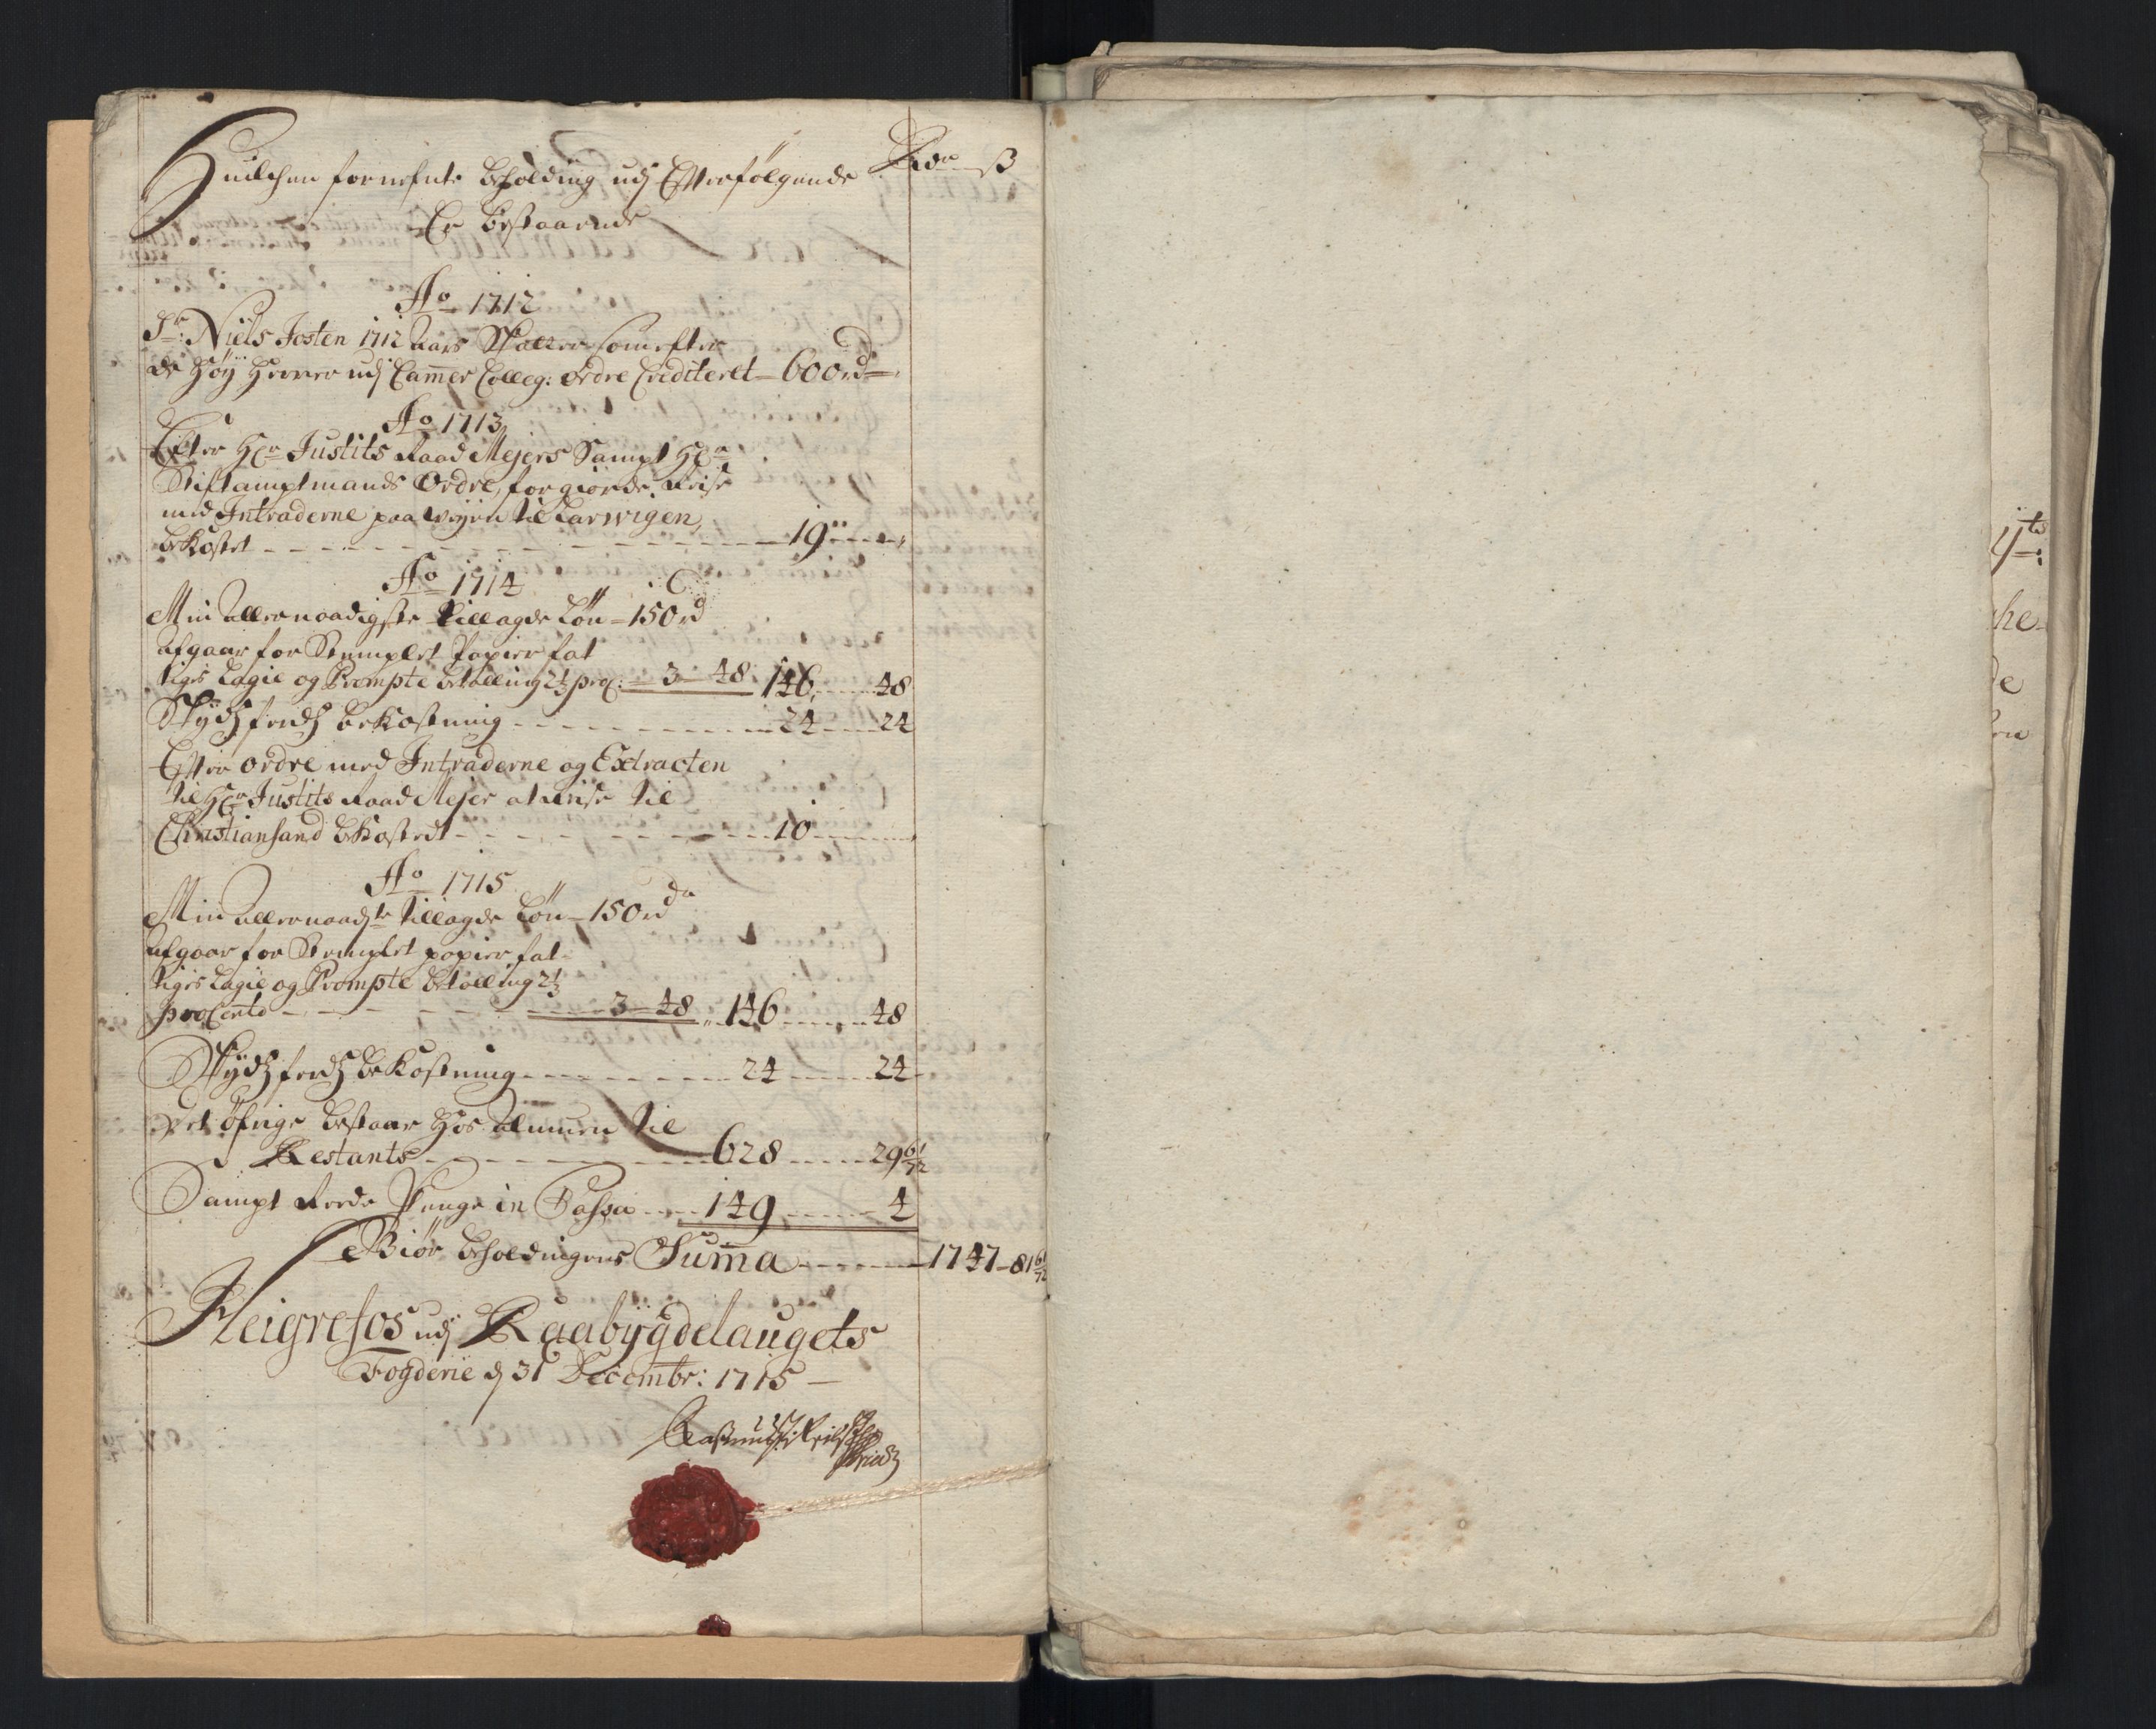 Huilchen fornefnte beholding udj Efterfølgende Rdr ß
Er bestaaende
Ao 1712
Sr: Niels Josten 1712 Aars Skatter som efter
de Høÿ Herrer udj Cam̄er Colleg: ordre Crediteret 600 rd
Ao 1713
Efter Hr Justits Raad Mejers Sampt Hr
Stiftamptmands Ordre, forgiorde Reise
med Intraderne paa Veÿen til Larwigen,
bekostet 19
Ao 1714
Min Allernaadigste tillagde Løn 150 rd
afgaar for Stemplet Papier fat
tiges Lagie og Prompte betalling 2⅓ proC: 3 48 146 48
Skÿdsferds bekostning 24 24
Efter ordre med Intraderne og Extracten
til Hr Justits Raad Mejer at reise til
Christiansand bekostedt 10
Ao 1715
Min allernaadste tillagde Løn 150 rdr
afgaar for Stemplet papier fat
tiges Lagie og Prompte betalling 2⅓
pro Cento 3 48 146 48
Skÿdsferds bekostning 24 24
Det øfrige bestaar hos Almuen til
Restants 628 29 61/72
Sampt Rede Penge in Cassa 149 4
Biør beholdingens Sum̄a 1747 81 61/72
Heigrefos udj Raabÿgdelaugets
Fogderie d 31 Decembr: 1715
yts
he
de